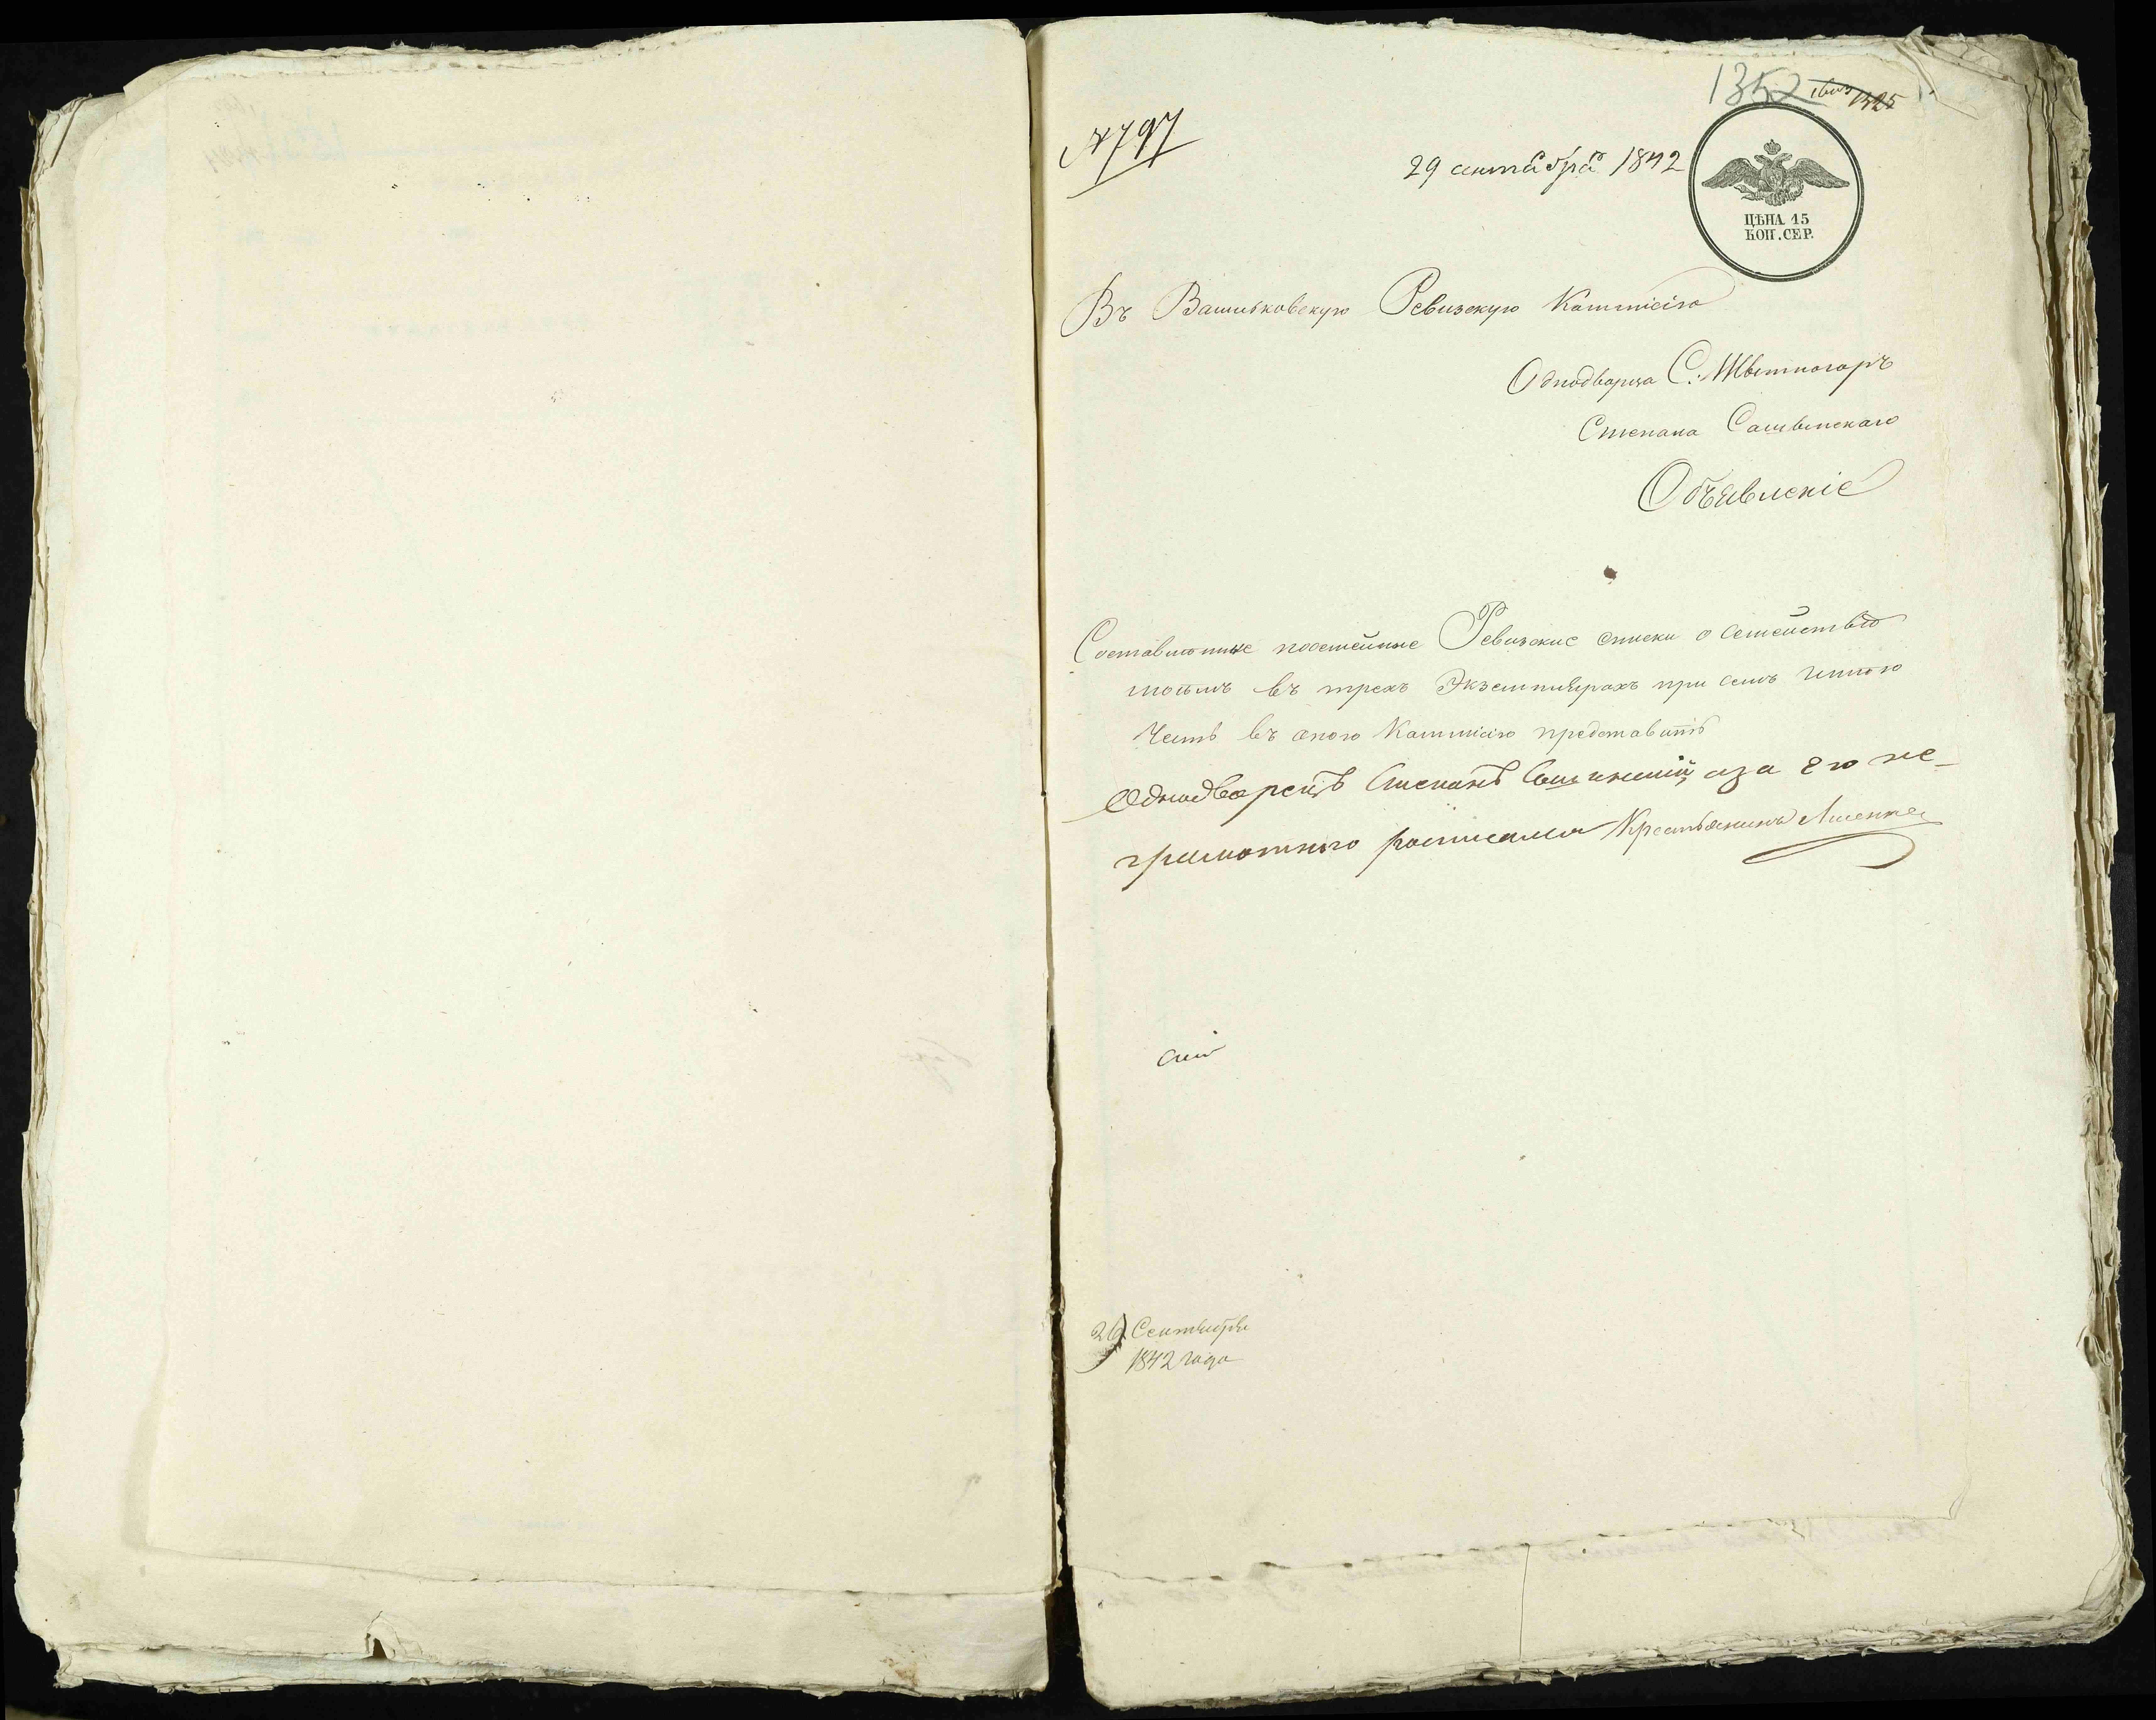 1352 1325
№ 797
29 сентября 1842
ЦѢНА 15
КОП. СЕР.
Въ Васильковскую Ревизскую Коммисію
Однодворца С:
Степана
Объявленіе
Составленные посемейные Ревизские списки о семействѣ
моемъ въ трехъ Экземплярахъ при семъ имѣю
Честь въ оною Коммисію представить
Однодворецъ Степанъ аза его не-
грамотного росписался Крестьянинъ
Сентября
1842 года